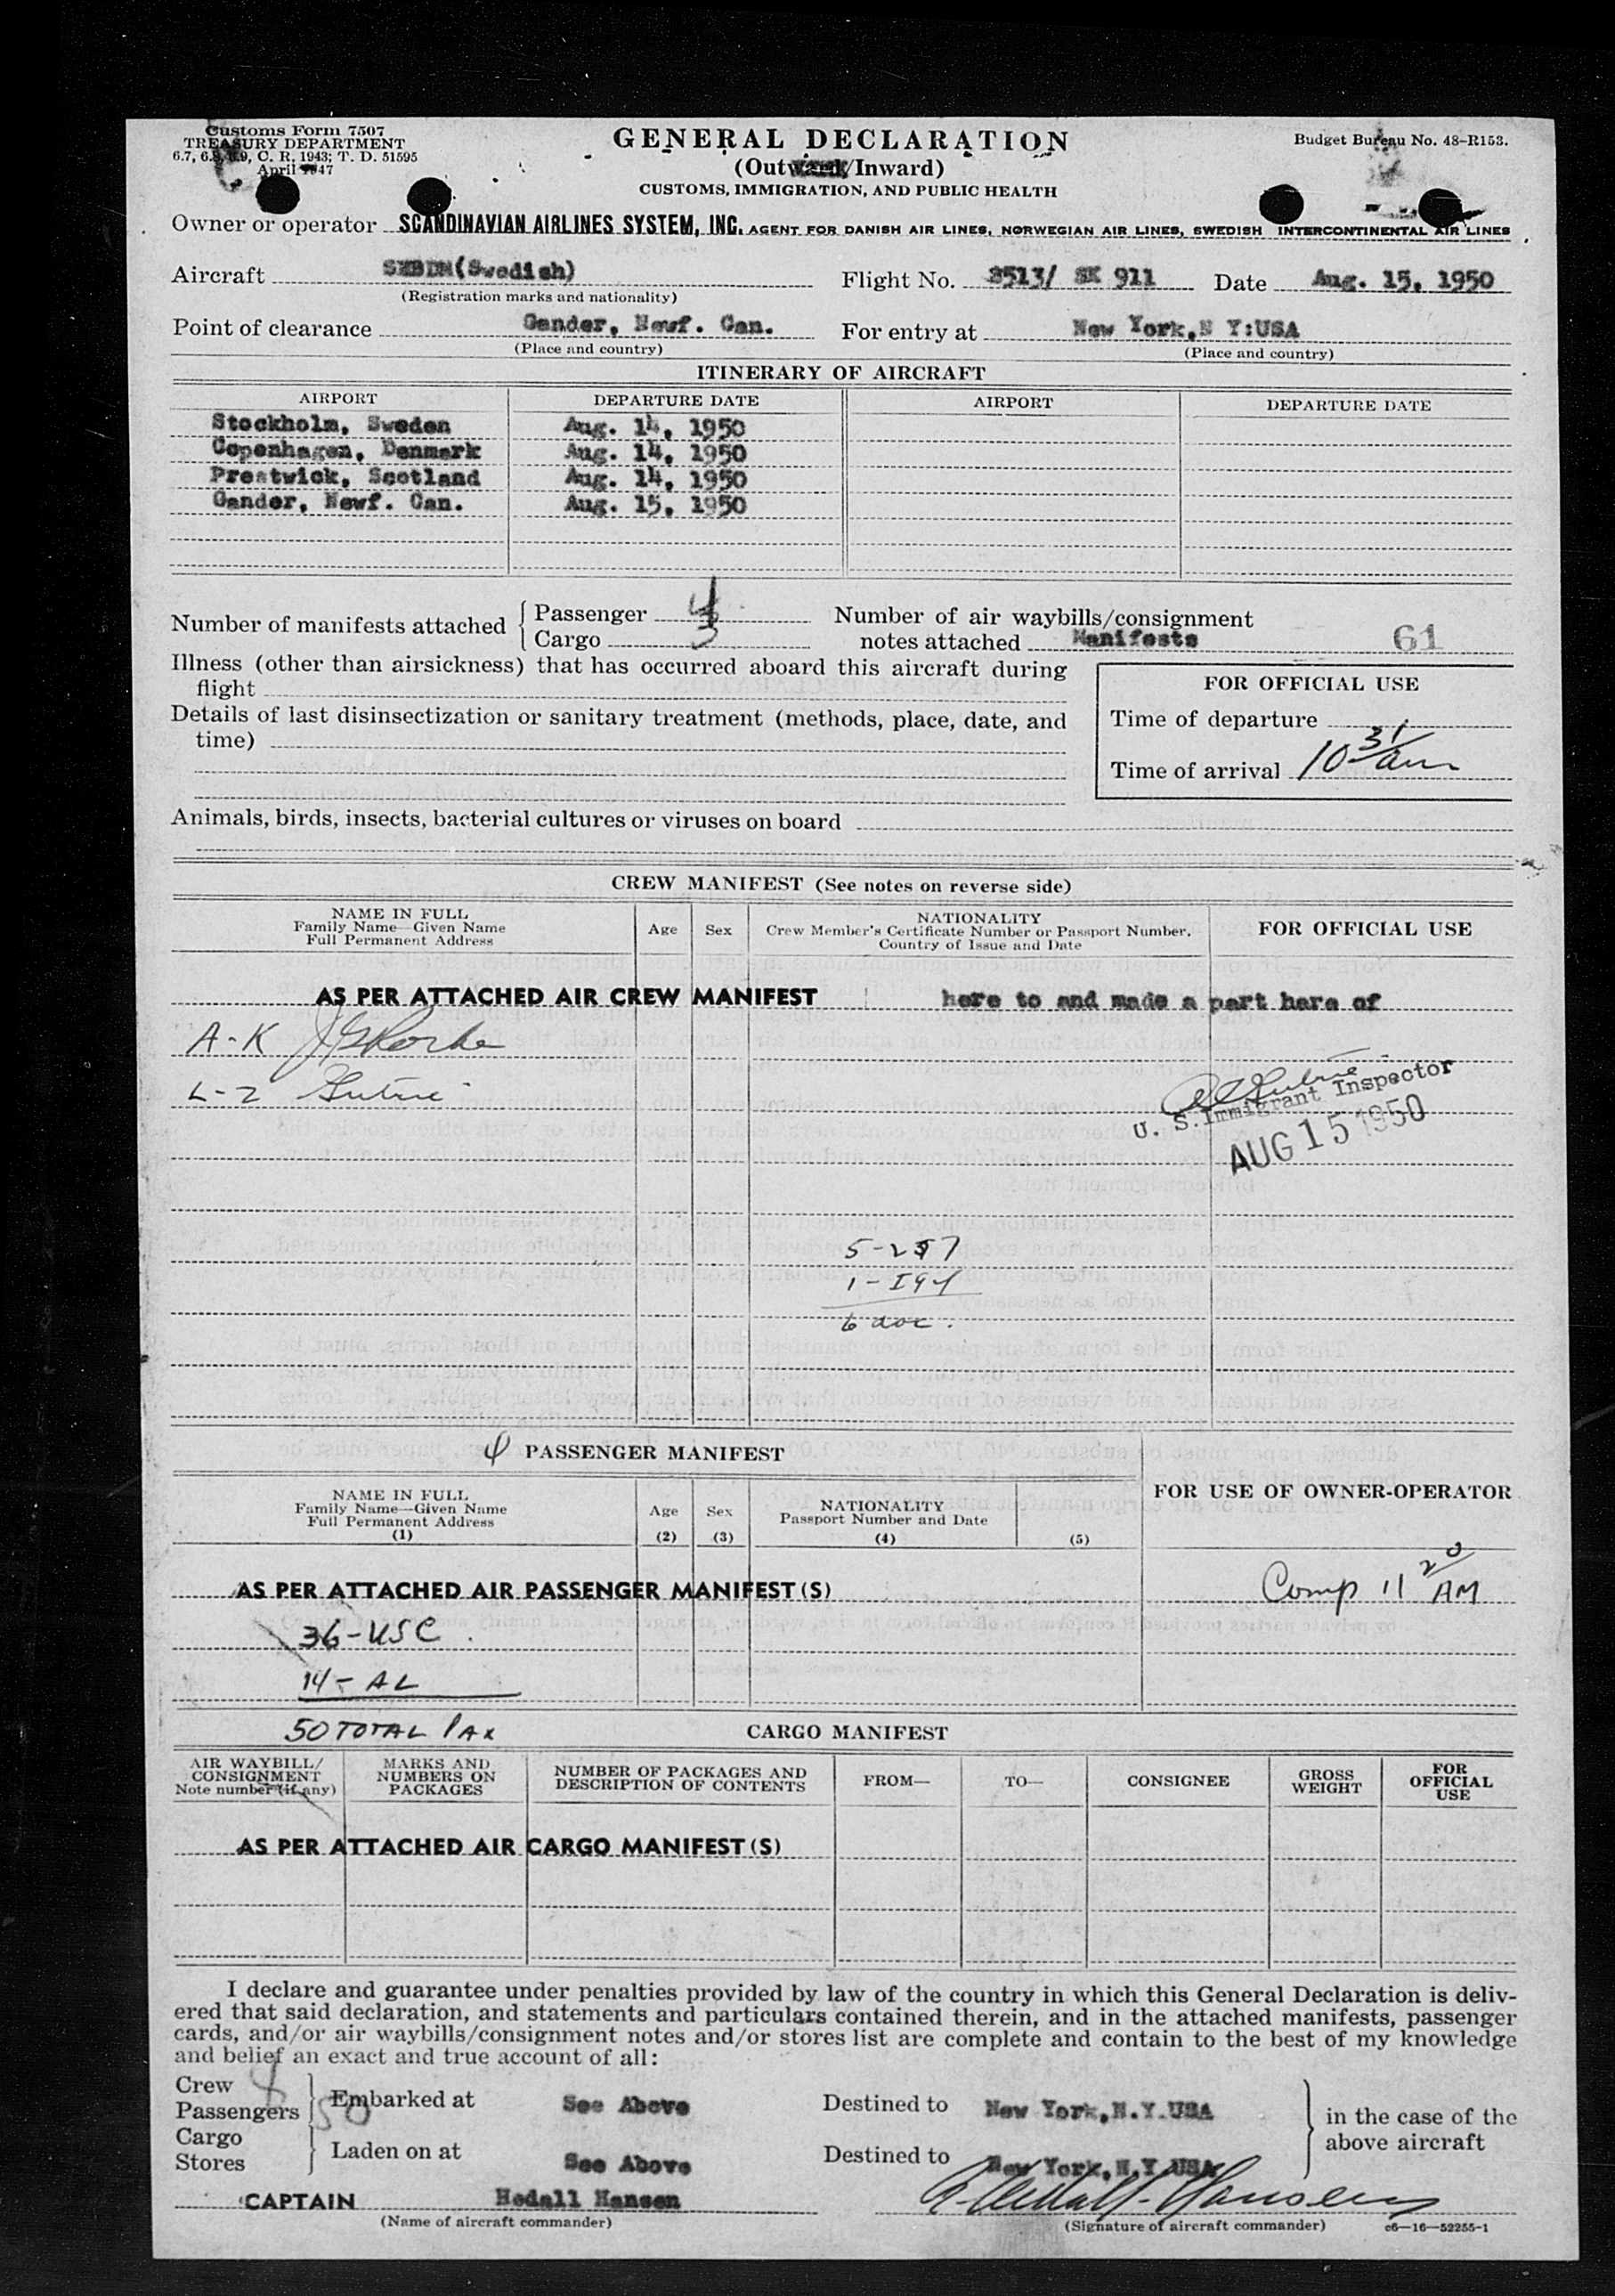 Customs Form 7507
TREASURY DEPARTMENT
6.7, 6.8, 6.9, C. R. 1943; T. D. 51595
April 1947
GENERAL DECLARATION
(Outward/Inward)
CUSTOMS, IMMIGRATION, AND PUBLIC HEALTH
Budget Bureau No. 48–R153.
Owner or operator SCANDINAVIAN AIRLINES SYSTEM, INC. AGENT FOR DANISH AIR LINES, NORWEGIAN AIR LINES, SWEDISH INTERCONTINENTAL AIR LINES
Aircraft SEBDM(Swedish) Flight No. 8513/ SK 911 Date Aug. 15, 1950
(Registration marks and nationality)
Point of clearance Gander, Newf. Can. For entry at New York,N Y:USA
(Place and country) (Place and country)
ITINERARY OF AIRCRAFT
AIRPORT DEPARTURE DATE AIRPORT DEPARTURE DATE
Stockholm, Sweden Aug. 14, 1950
Copenhagen, Denmark Aug. 14, 1950
Prestwick, Scotland Aug. 14, 1950
Gander, Newf. Can. Aug. 15, 1950
Number of manifests attached { Passenger 4 Number of air waybills/consignment
Cargo 3 notes attached Manifests 61
Illness (other than airsickness) that has occurred aboard this aircraft during
flight
FOR OFFICIAL USE
Details of last disinsectization or sanitary treatment (methods, place, date, and
time)
Time of departure
Time of arrival 10 31/am
Animals, birds, insects, bacterial cultures or viruses on board
CREW MANIFEST (See notes on reverse side)
NAME IN FULL
Family Name—Given Name
Full Permanent Address
Age Sex
NATIONALITY
Crew Member's Certificate Number or Passport Number.
Country of Issue and Date
FOR OFFICIAL USE
AS PER ATTACHED AIR CREW MANIFEST here to and made a part here of
A-K
L-Z
U. S. Immigrant Inspector
AUG 15 1950
5-257
1-I94
6 doc.
4 PASSENGER MANIFEST
NAME IN FULL
Family Name—Given Name
Full Permanent Address
(1)
Age
(2)
Sex
(3)
NATIONALITY
Passport Number and Date
(4) (5)
FOR USE OF OWNER-OPERATOR
AS PER ATTACHED AIR PASSENGER MANIFEST(S)
Comp 11 20/AM
36-USC.
14-AL
50 TOTAL PAX
CARGO MANIFEST
AIR WAYBILL/
CONSIGNMENT
Note number (if any)
MARKS AND
NUMBERS ON
PACKAGES
NUMBER OF PACKAGES AND
DESCRIPTION OF CONTENTS
FROM— TO— CONSIGNEE
GROSS
WEIGHT
FOR
OFFICIAL
USE
AS PER ATTACHED AIR CARGO MANIFEST(S)
I declare and guarantee under penalties provided by law of the country in which this General Declaration is deliv-
ered that said declaration, and statements and particulars contained therein, and in the attached manifests, passenger
cards, and/or air waybills/consignment notes and/or stores list are complete and contain to the best of my knowledge
and belief an exact and true account of all:
Crew
Passengers 50 } Embarked at See Above Destined to New York,N.Y.USA
Cargo
Stores } Laden on at See Above Destined to New York,N.Y USA
in the case of the
above aircraft
CAPTAIN Hedall Hansen
(Name of aircraft commander) (Signature of aircraft commander) c6—16—52255-1